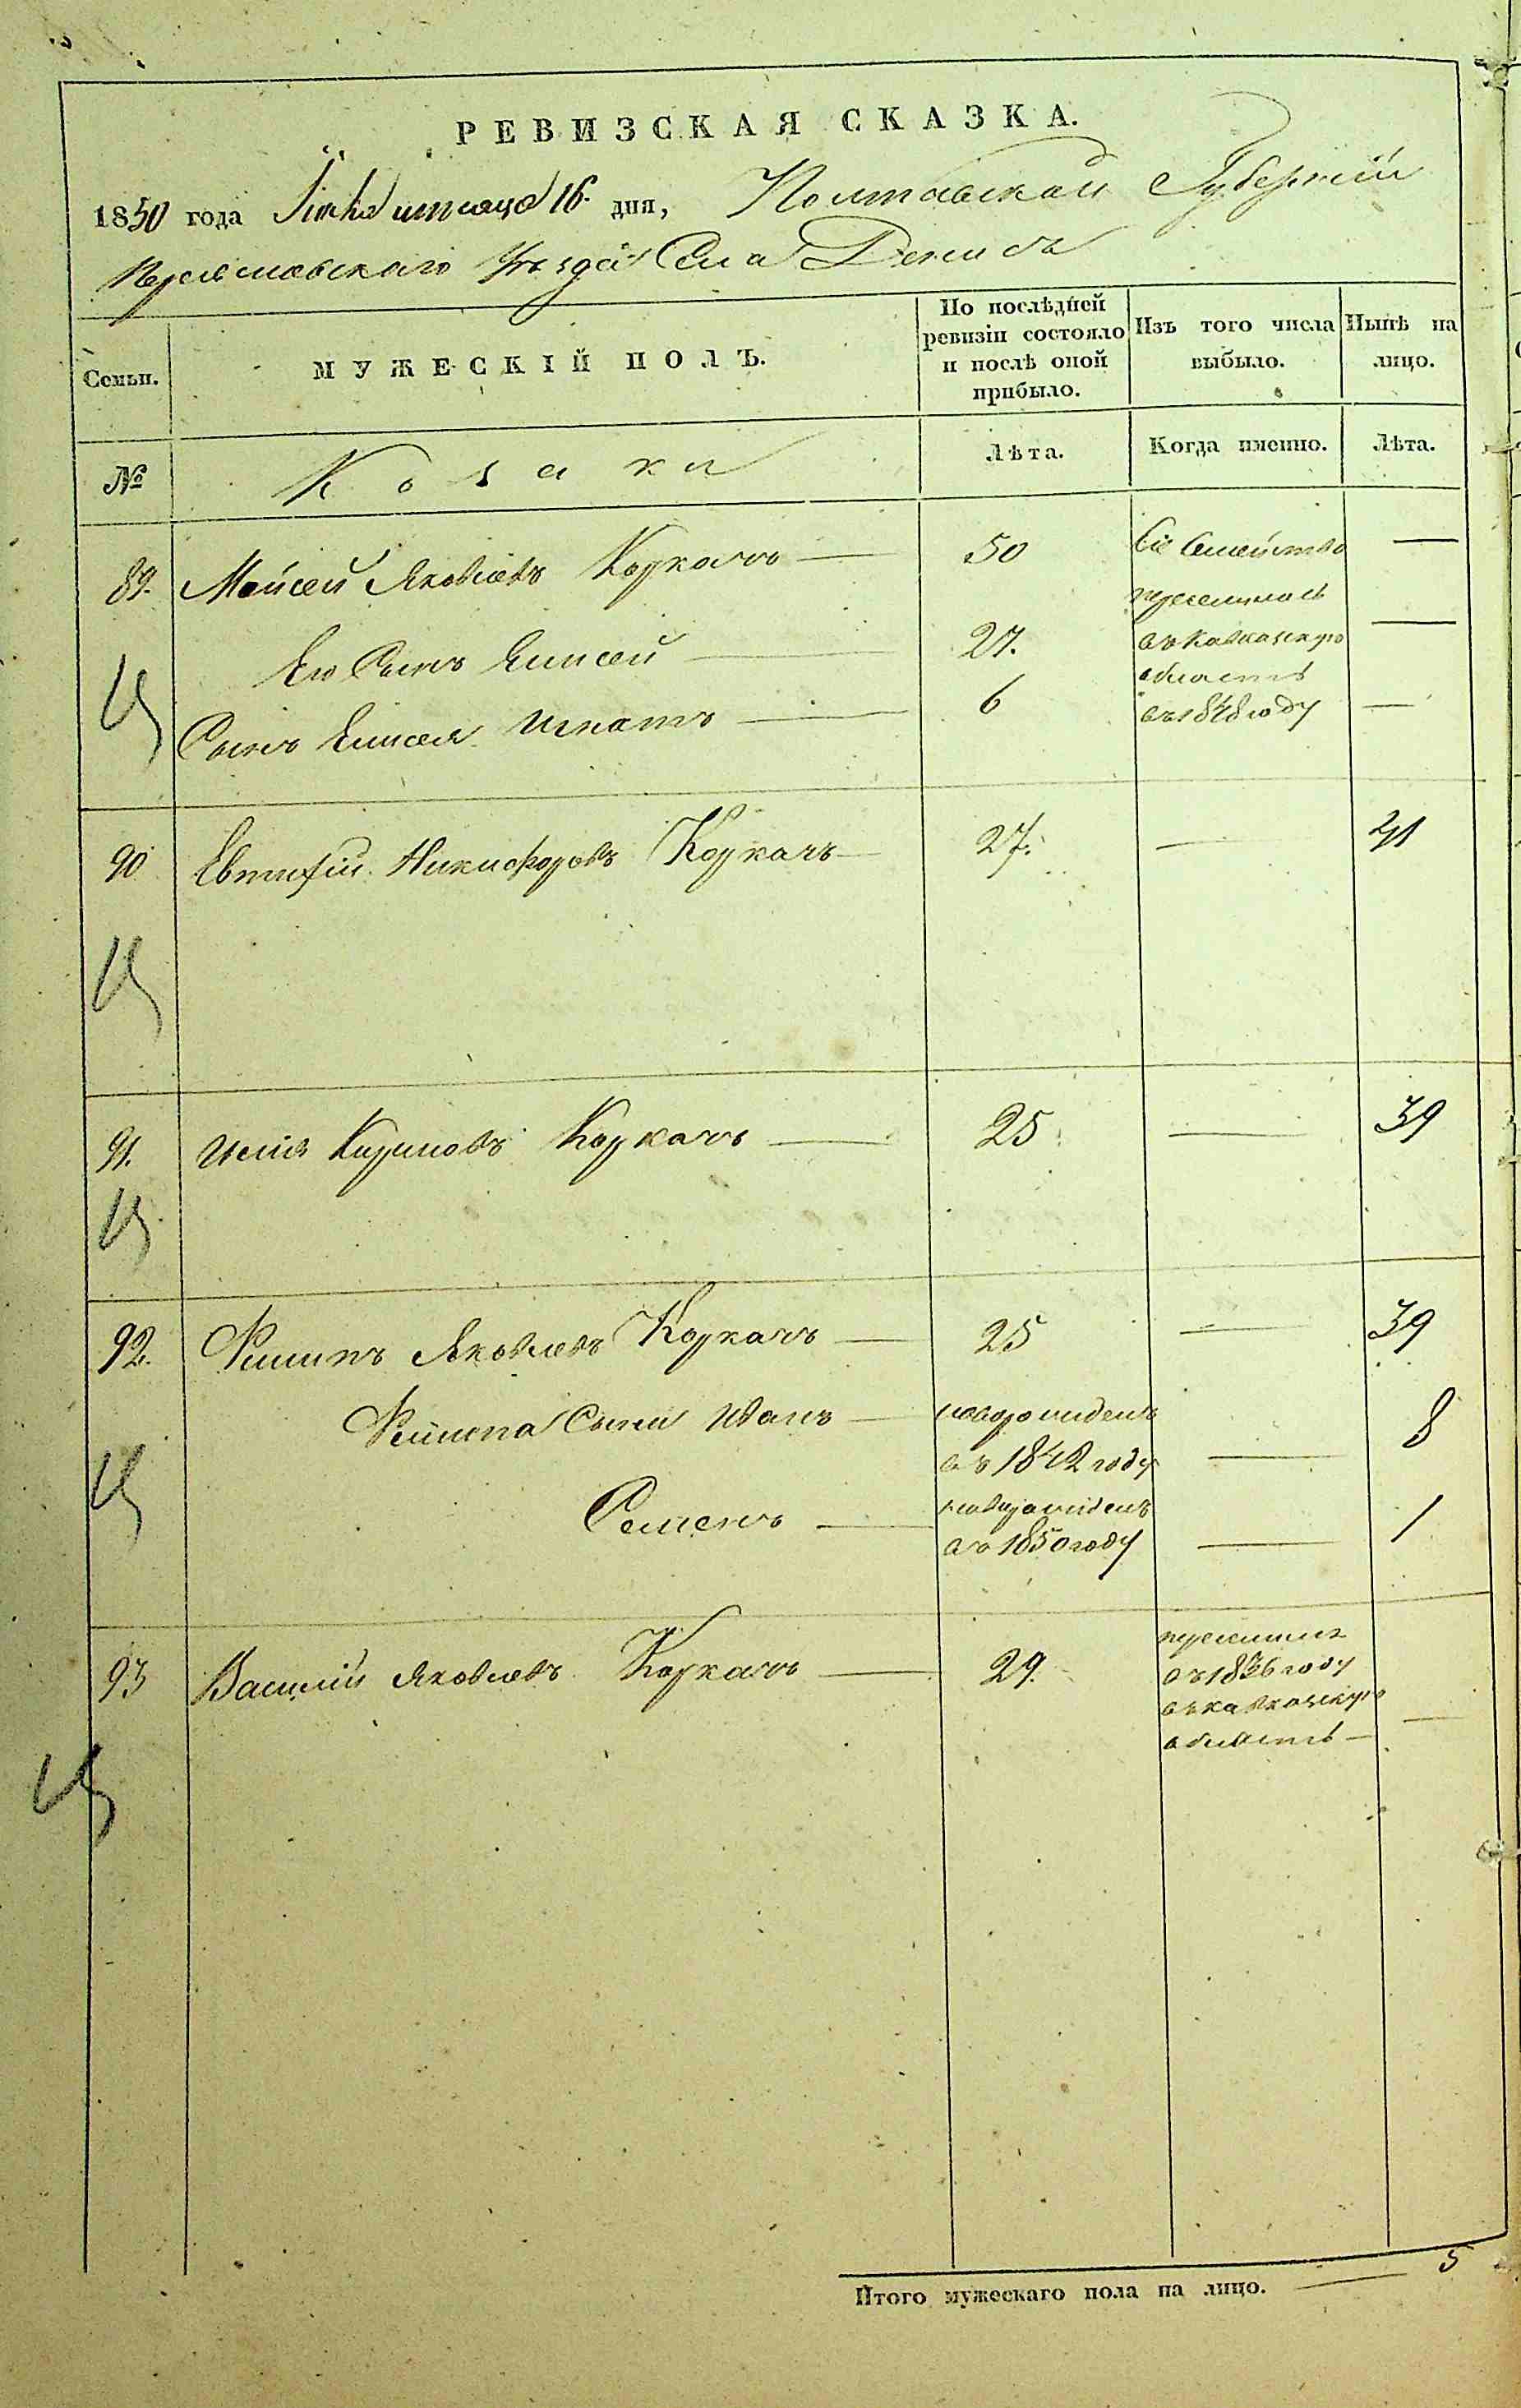 РЕВИЗСКАЯ СКАЗКА.
1850 года Іюля месяца 16. дня, Полтавской Губерніи
Переяславскаго Уезда Села Денисъ
Семьи.
МУЖЕСКІЙ ПОЛЪ.
По послѣдней ревизіи состояло и послѣ оной прибыло.
Изъ того числа выбыло.
Нынѣ на лицо.
№
Козаки
Лѣта.
Когда именно.
Лѣта.
89. Мойсей Яковлевъ Коркачъ — 50 Сіе Семейство —
переселилось
Его Сынъ Елисей — 27. въ Кавказскую —
область
Сынъ Елисея Игнатъ — 6 въ 1848 году —
90 Евтифій Никифоровъ Коркачъ — 27. — 41
91. Илія Кириловъ Коркачъ — 25 — 39
92. Филипъ Яковлевъ Коркачъ — 25 — 39
Филипа Сыни Иванъ — новорожденъ — 8
въ 1842 году
Семенъ — новорожденъ — 1
въ 1850 году
93 Василій Яковлевъ Коркачъ — 29. переселился
въ 1836 году
въ Кавказскую
область — —
Итого мужескаго пола на лицо. — 5